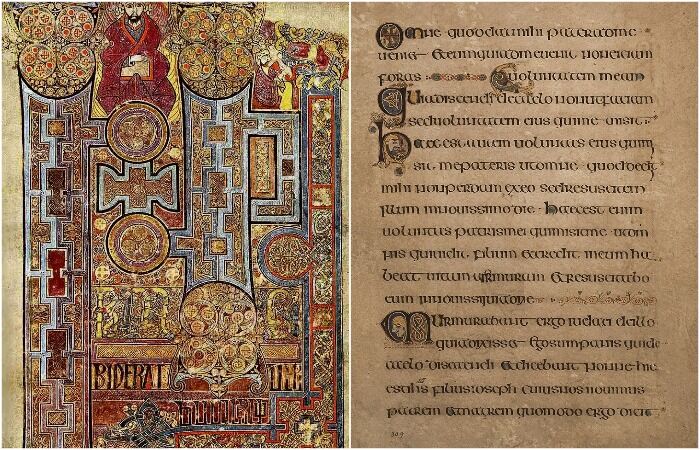 ERAT
Omne quod dat mihi pater ad me
ueniet et eum qui ad me uenit non eiciam
foras uoluntatem meam
Quia discendi de caelo non ut faciam
sed uoluntatem eius qui me misit
Haec est uoluntas eius qui mi
sit me patris ut omne quod dedit
mihi non perdam ex eo sed resuscitem
illum in nouissimo die Haec est enim
uoluntas patris mei qui misit me ut om
nis qui uidit filium et credit in eum ha
beat uitam et resuscitabo
eum in nouissimo die
Murmurabant ergo iudaei de illo
quia dixisset ego sum panis qui de
caelo discendi et dicebant nonne hic
est ihs filius ioseph cuius nos nouimus
patrem et matrem quomodo ergo dicit
309